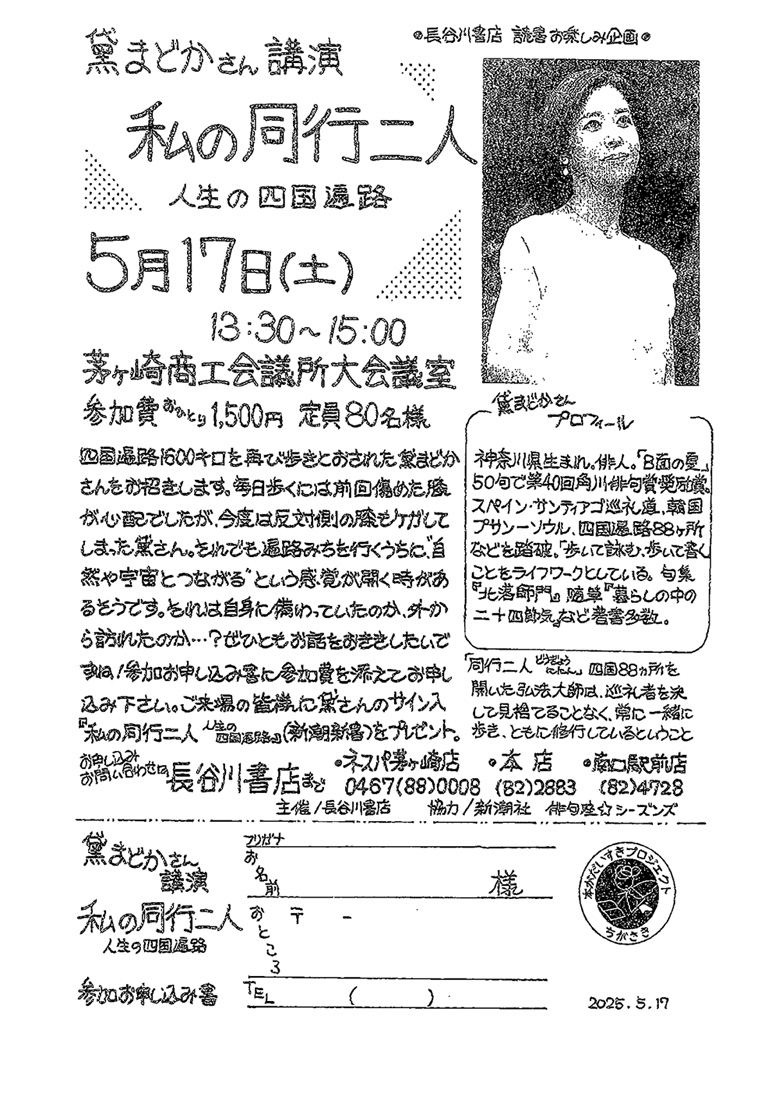 ●長谷川書店 読書お楽しみ企画●
黛まどかさん講演
私の同行二人
人生の四国遍路
5月17日(土)
13:30～15:00
茅ヶ崎商工会議所大会議室
参加費おひとり1,500円 定員80名様
四国遍路1600キロを再び歩きとおされた黛まどか
さんをお招きします。毎日歩くには前回傷めた膝
が心配でしたが、今度は反対側の膝もケガして
しまった黛さん。それでも遍路みちを行くうちに、"自
然や宇宙とつながる"という感覚が開く時があ
るそうです。それは自身に備わっていたのか、外か
ら訪れたのか…?ぜひともお話をおききしたいで
すね!参加お申し込み書に参加費を添えてお申し
込み下さい。ご来場の皆様に黛さんのサイン入
『私の同行二人 人生の四国遍路』(新潮新書)をプレゼント。
黛まどかさん
プロフィール
神奈川県生まれ。俳人。「B面の夏」
50句で第40回角川俳句賞奨励賞。
スペイン・サンティアゴ巡礼道、韓国
プサン-ソウル、四国遍路88ヶ所
などを踏破。「歩いて詠む・歩いて書く」
ことをライフワークとしている。句集
『北落師門』随筆『暮らしの中の
二十四節気』など著書多数。
「同行二人 どうぎょうににん」四国88ヵ所を
開いた弘法大師は、巡礼者を決
して見捨てることなく、常に一緒に
歩き、ともに修行しているということ
お申し込み
お問い合わせは 長谷川書店まで
●ネスパ茅ヶ崎店 0467(88)0008
●本店 (82)2883
●南口駅前店 (82)4728
主催/長谷川書店 協力/新潮社 俳句座☆シーズンズ
黛まどかさん
講演
私の同行二人
人生の四国遍路
参加お申し込み書
フリガナ
お名前 様
おところ 〒 -
TEL ( )
本がだいすきプロジェクト
ちがさき
2025.5.17